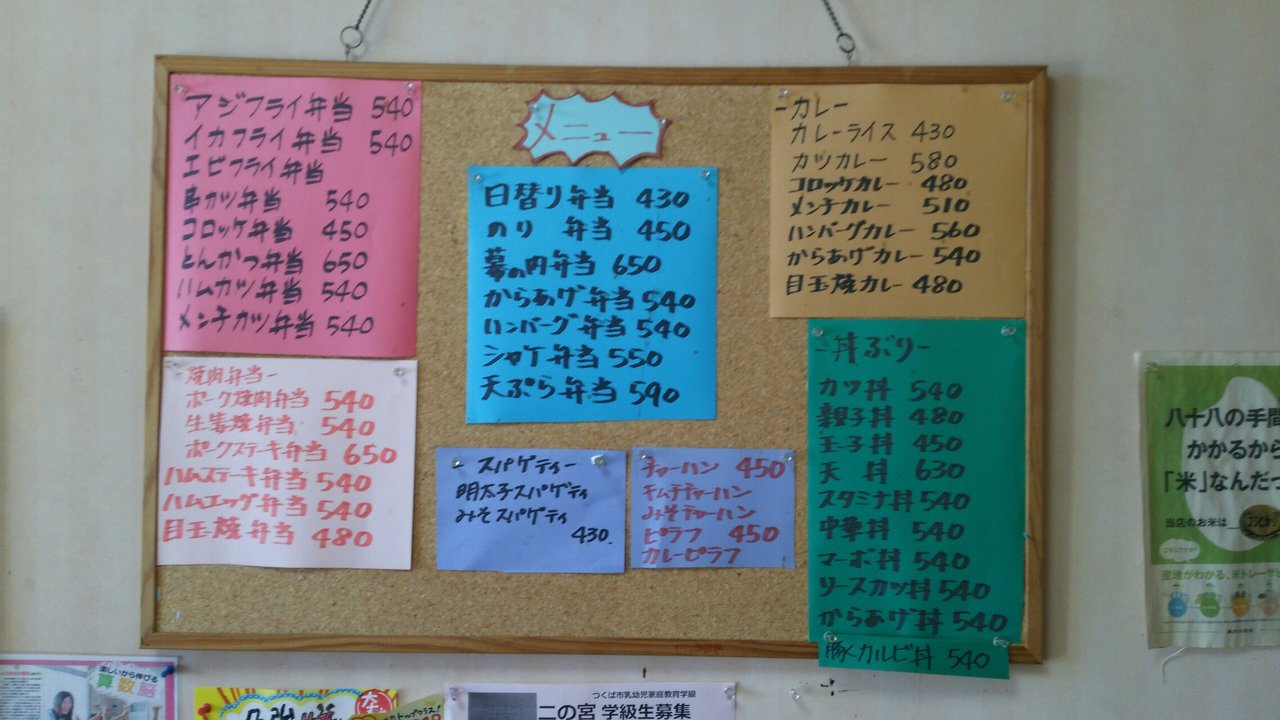 メニュー
アジフライ弁当 540
イカフライ弁当 540
エビフライ弁当
串カツ弁当 540
コロッケ弁当 450
とんかつ弁当 650
ハムカツ弁当 540
メンチカツ弁当 540
焼肉弁当ー
ポーク焼肉弁当 540
生姜焼弁当 540
ポークステーキ弁当 650
ハムステーキ弁当 540
ハムエッグ弁当 540
目玉焼弁当 480
日替り弁当 430
のり 弁当 450
幕の内弁当 650
からあげ弁当 540
ハンバーグ弁当 540
シャケ弁当 550
天ぷら弁当 590
ースパゲティー
明太子スパゲティ
みそスパゲティ
430.
チャーハン 450
キムチチャーハン
みそチャーハン
ピラフ 450
カレーピラフ
ーカレー
カレーライス 430
カツカレー 580
コロッケカレー 480
メンチカレー 510
ハンバーグカレー 560
からあげカレー 540
目玉焼カレー 480
ー丼ぶりー
カツ丼 540
親子丼 480
玉子丼 450
天 丼 630
スタミナ丼 540
中華丼 540
マーボ丼 540
ソースカツ丼 540
からあげ丼 540
豚カルビ丼 540
八十八の手間
かかるから
「米」なんだっ
当店のお米は
産地がわかる、米トレーサ
楽しいから伸びる
算数脳
つくば市乳幼児家庭教育学級
二の宮 学級生募集